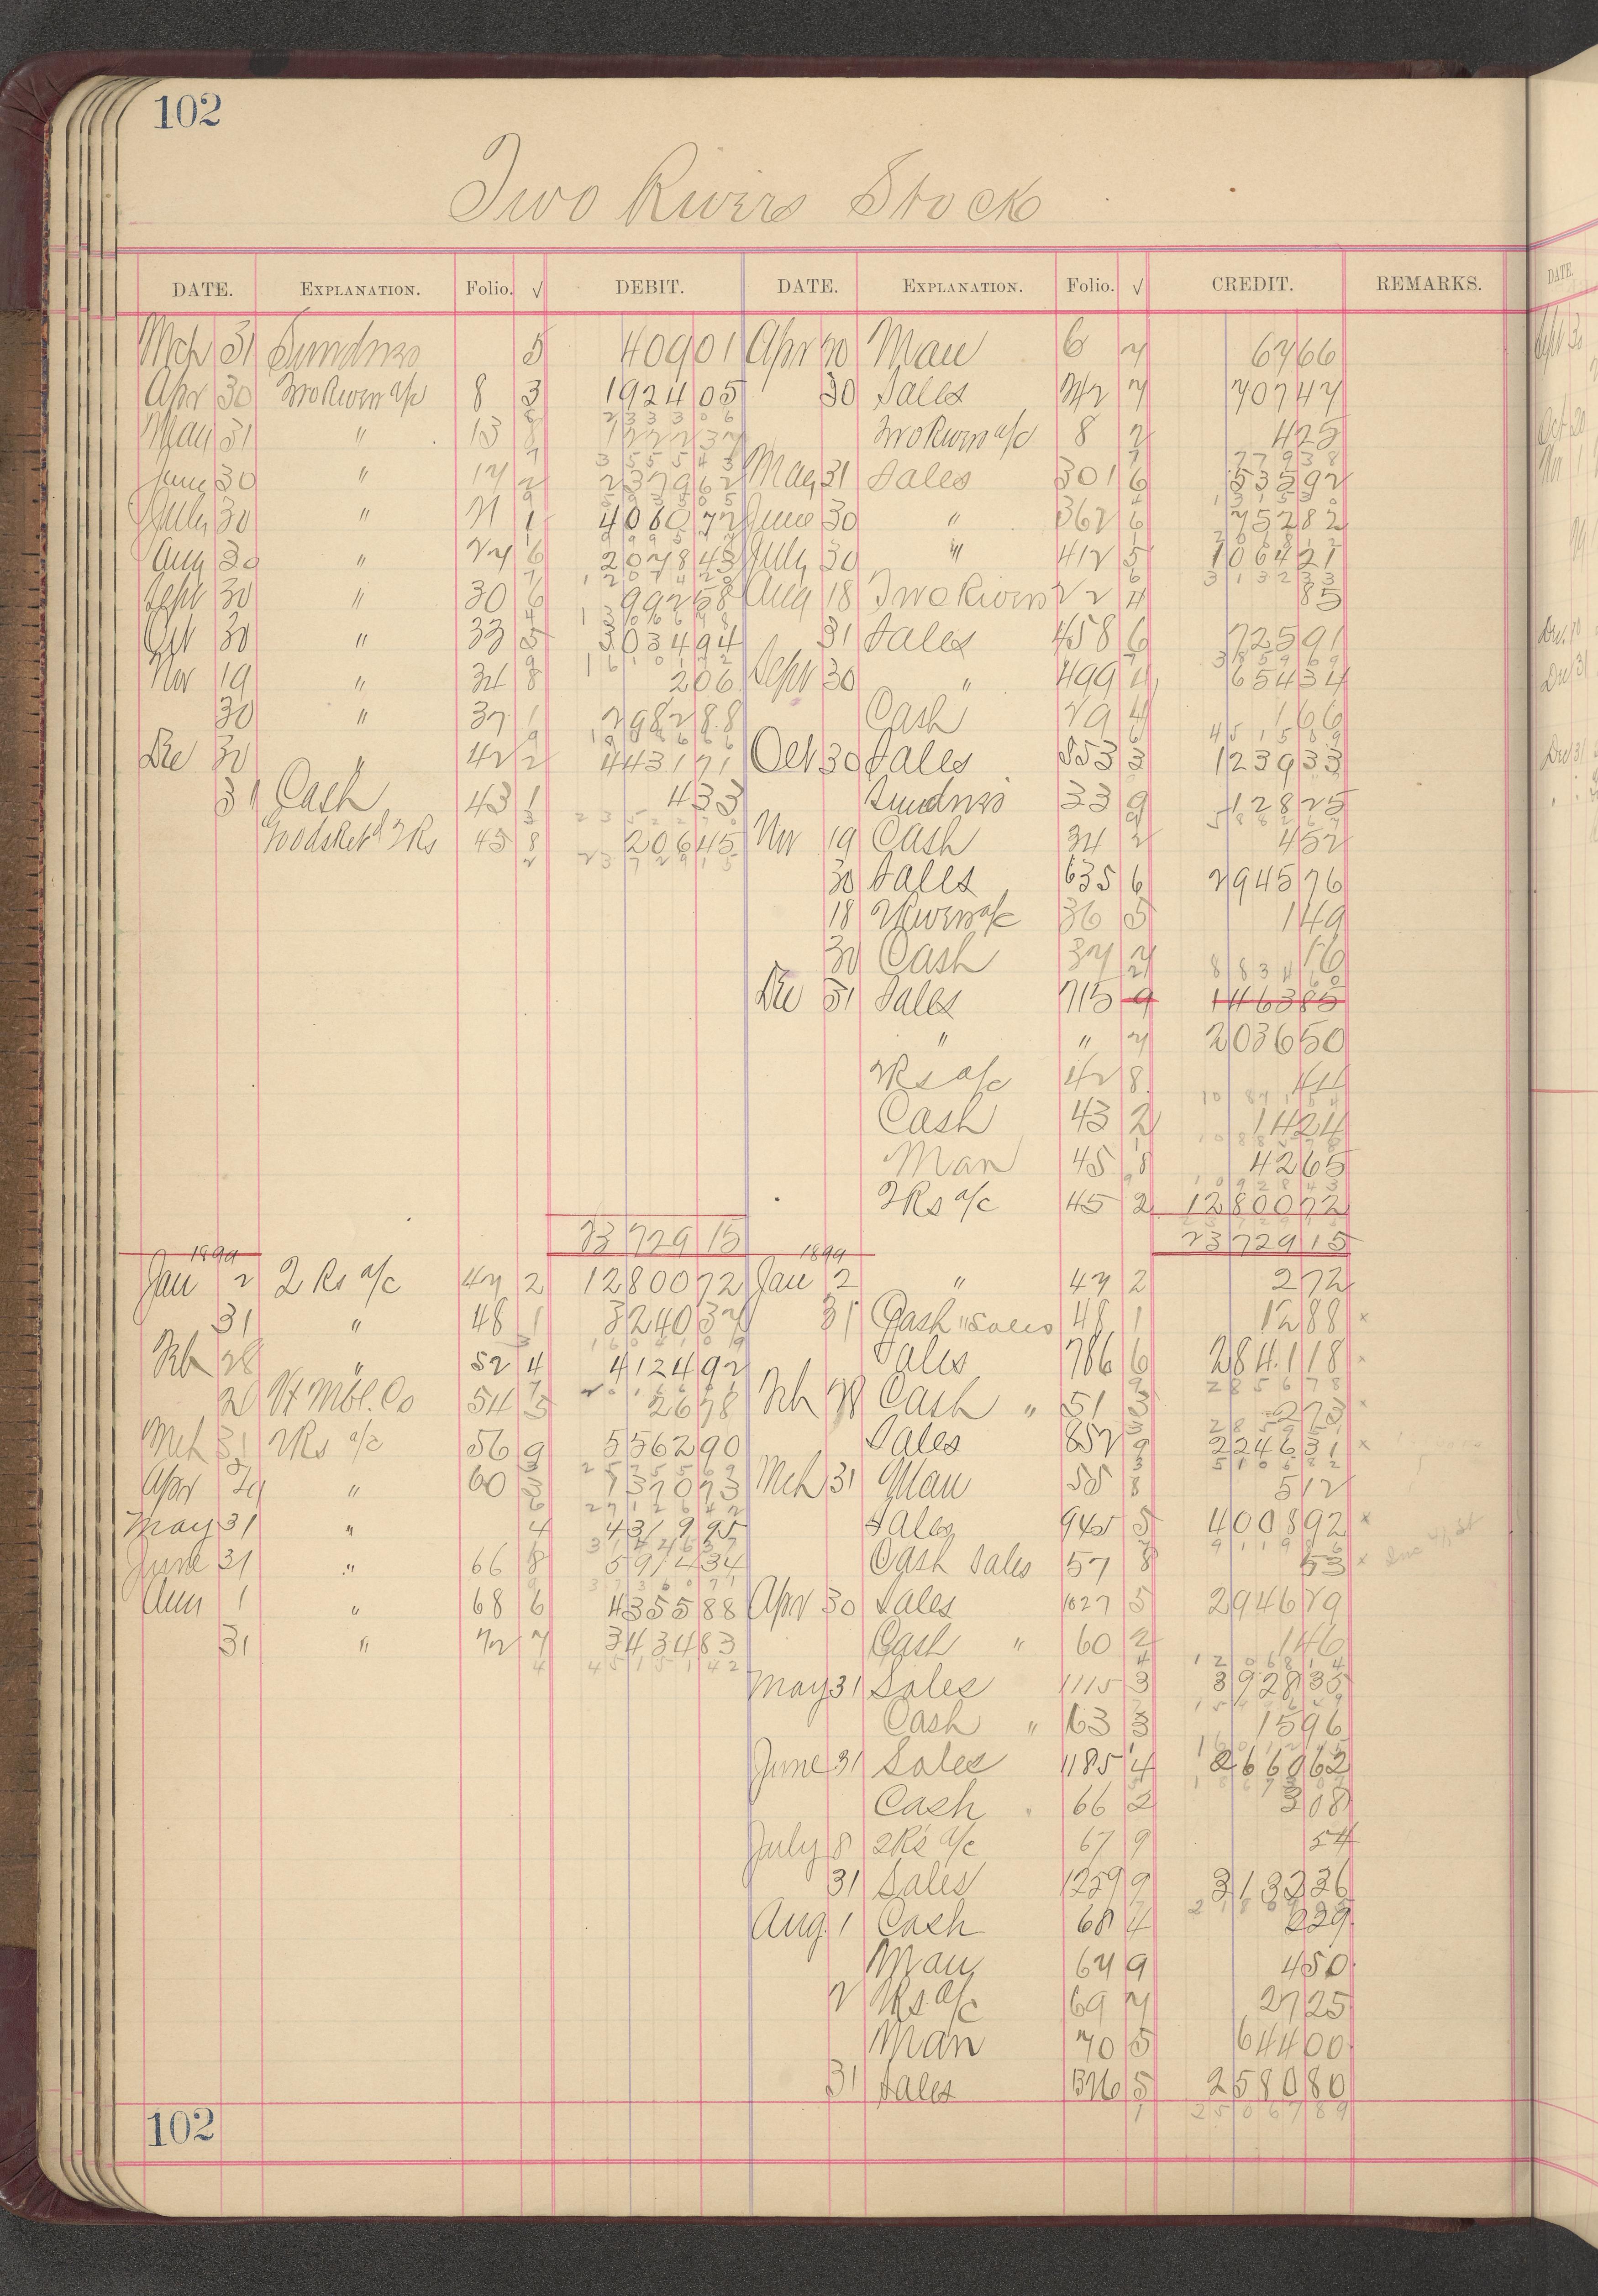 102
Two Rivers Stock
DATE. EXPLANATION. Folio. √ DEBIT. DATE. EXPLANATION. Folio. √ CREDIT. REMARKS.
Mch 31 Sundries 5 409 01 Apr 30 Man 6 7 67 66
Apr 30 Two Rivers a/c 8 3 1924 05 30 Sales 242 7 707 47
May 31 " 13 8 1222 37 Two Rivers a/c 8 2 4 25
June 30 " 17 2 2379 62 May 31 Sales 301 6 535 92
July 30 " 21 1 4060 72 June 30 " 362 6 752 82
Aug 30 " 24 6 2078 43 July 30 " 412 5 1064 21
Sept 30 " 30 6 992 58 Aug 18 Two Rivers 22 4 85
Oct 30 " 33 5 3034 94 31 Sales 458 6 725 91
Nov 19 " 34 8 2 06 Sept 30 " 499 4 654 34
30 " 37 1 2982 88 Cash 29 4 1 66
Dec 30 " 42 2 4431 71 Oct 30 Sales 553 3 1239 33
31 Cash 43 1 4 33 Sundries 33 9 128 25
Goods Ret'd 2Rs 45 8 206 45 Nov 19 Cash 34 2 4 52
30 Sales 635 6 2945 76
18 2Rivers a/c 36 5 1 49
30 Cash 37 7 16
Dec 31 Sales 715 9 1463 85
" " 7 2036 50
2Rs a/c 42 8 44
Cash 43 2 14 24
Man 45 8 42 65
2Rs a/c 45 2 12800 72
23729 15 23729 15
1899 1899
Jan 2 2 Rs a/c 47 2 12800 72 Jan 2 " 47 2 2 72
31 " 48 1 3240 37 31 Cash "Sales 48 1 12 88 x
Feb 28 " 52 4 4124 92 Sales 786 6 2841 18 x
20 Vt Mbl. Co 54 5 26 78 Feb 28 Cash " 51 3 2 73 x
Mch 31 2Rs a/c 56 9 5562 90 Sales 852 9 2246 31 x
Apr " 60 3 1370 73 Mch 31 Man 55 8 5 12
May 31 " 4 4319 95 Sales 945 5 4008 92 x
June 31 " 66 8 5914 34 Cash Sales 57 8 53 x
Aug 1 " 68 6 4355 88 Apr 30 Sales 1027 5 2946 79
31 " 72 7 3434 83 Cash " 60 2 1 46
4 45151 42
May 31 Sales 1115 3 3928 35
Cash " 63 3 15 96
June 31 Sales 1185 4 2660 62
Cash " 66 2 3 08
July 8 2Rs a/c 67 9 54
31 Sales 1259 9 3133 36
Aug. 1 Cash 68 4 2 29
Man 67 9 4 50
2 2Rs a/c 69 7 27 25
Man 70 5 644 00
31 Sales 1326 5 2580 80
1 25067 89
102